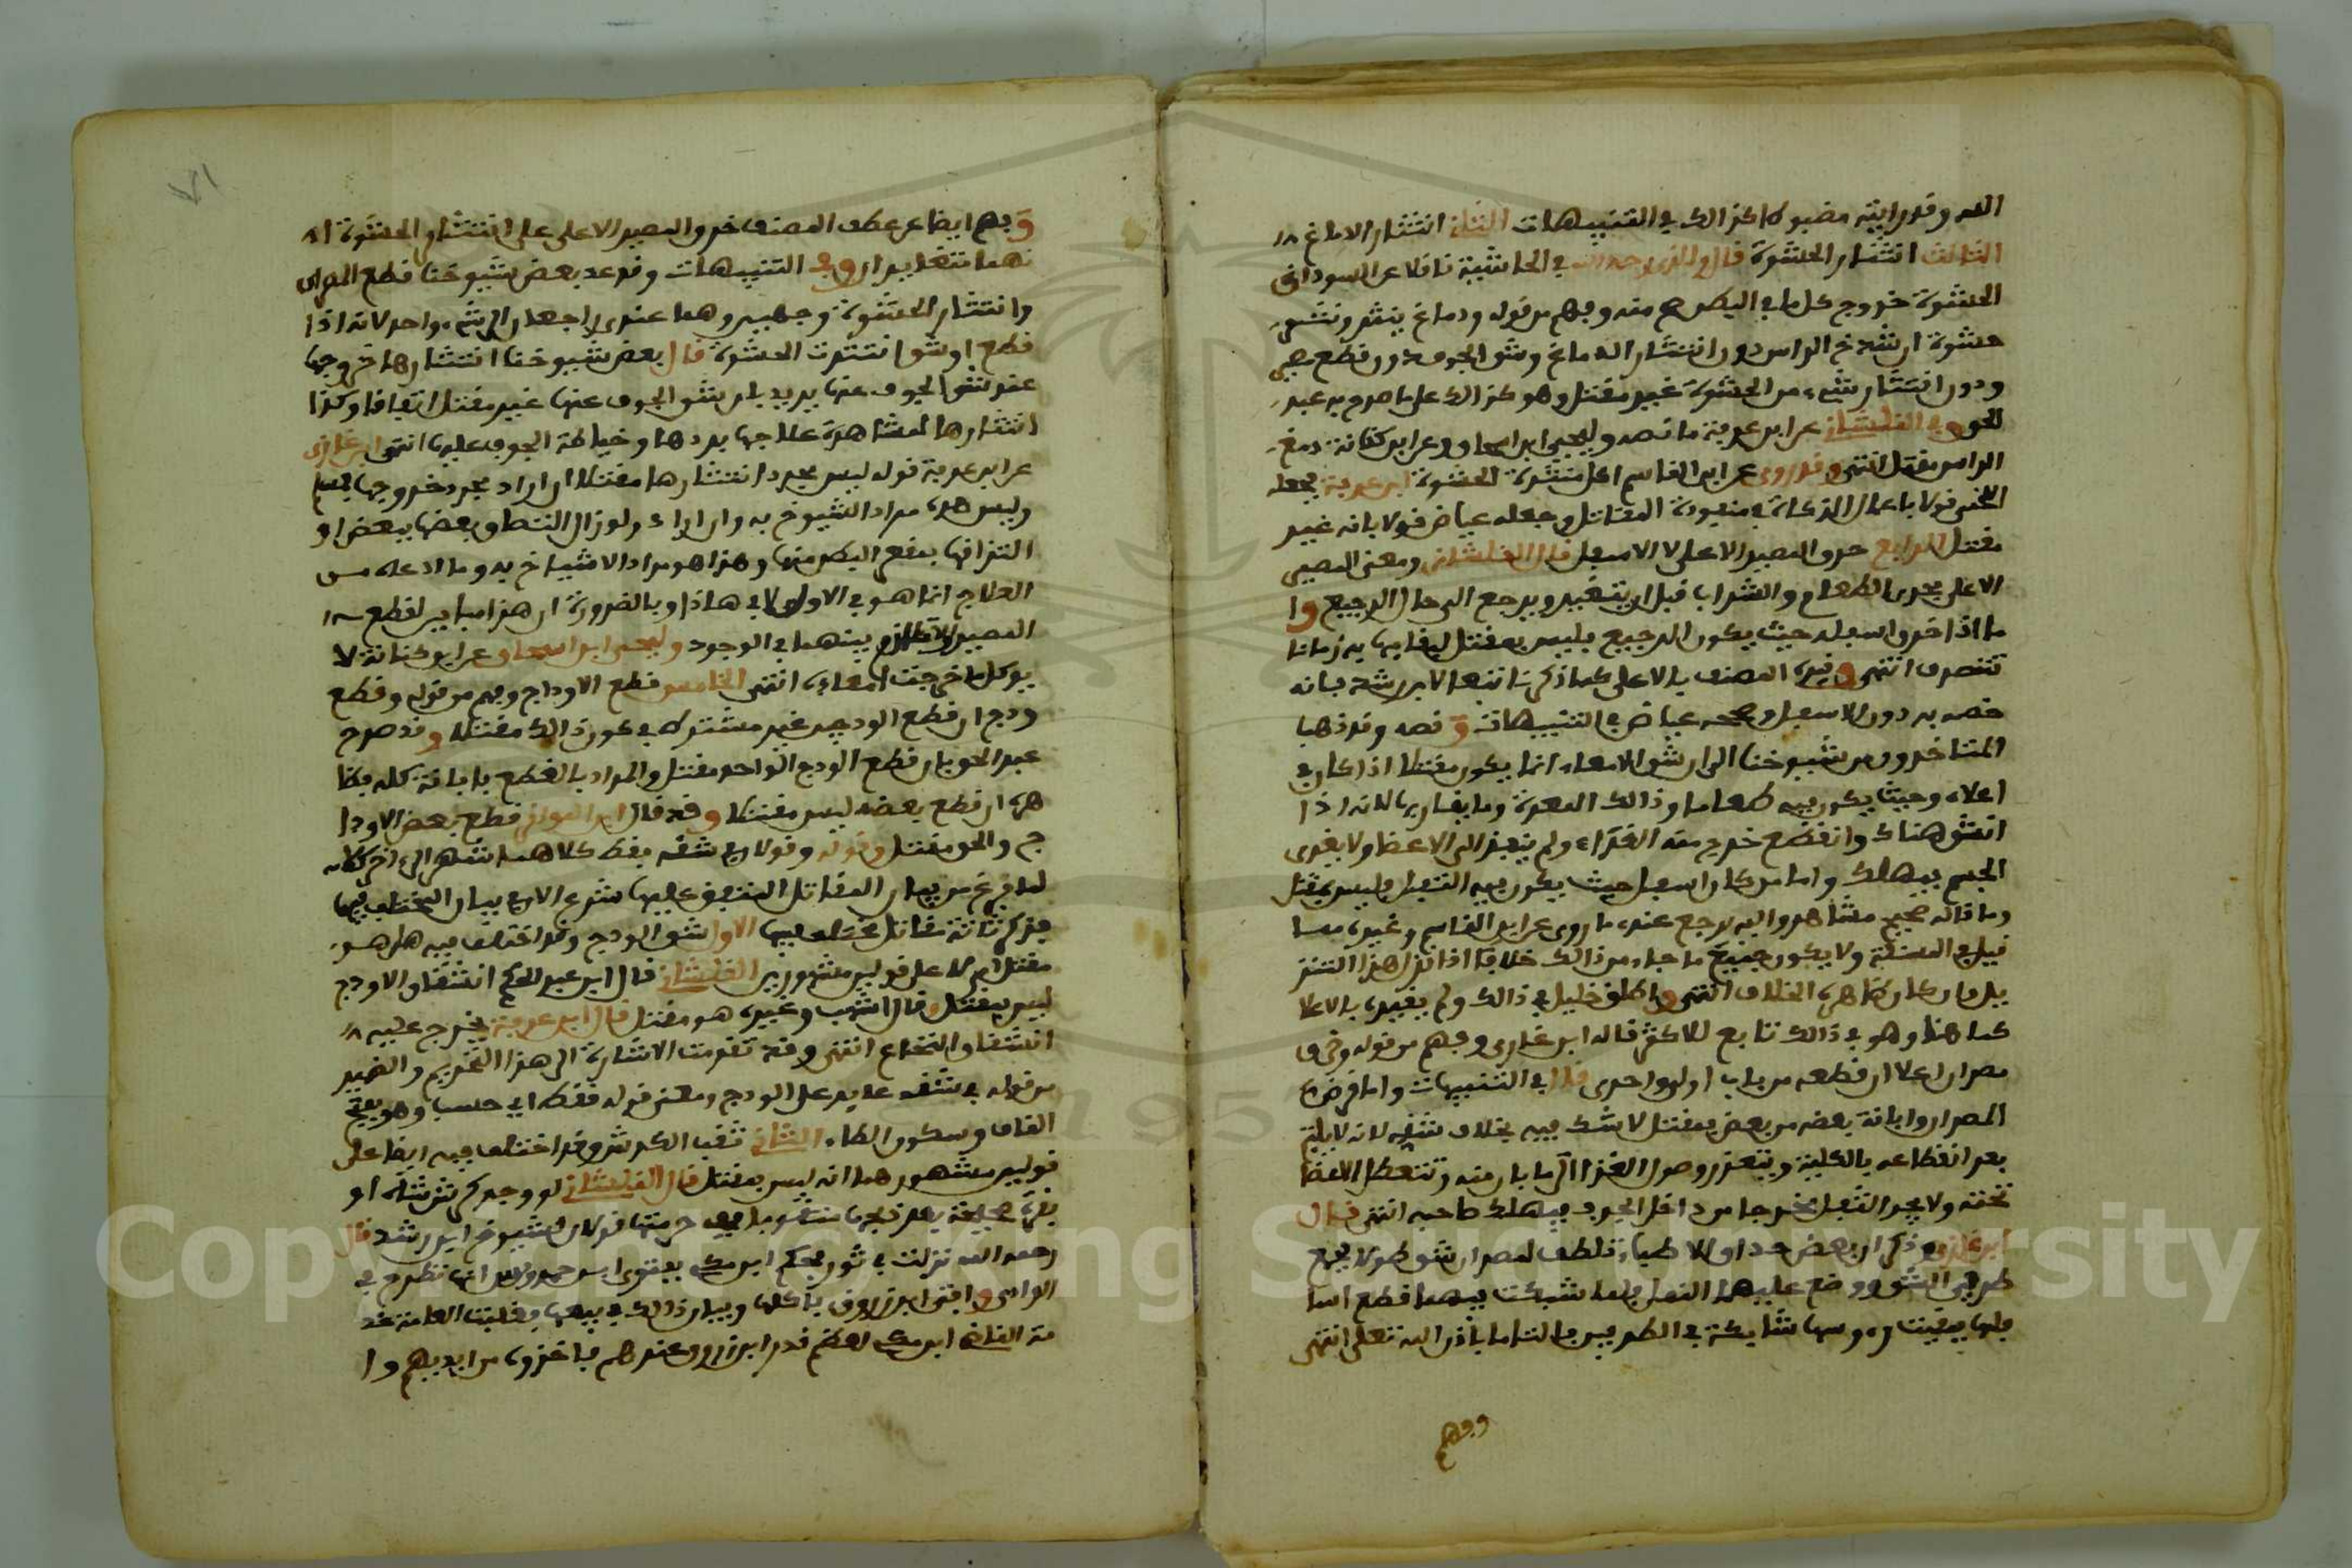 الله وقد رايته مضبوطا كذالك في التنبيهات الثاني انتثار الدماغ
الثالث انتثار الحشوة قال والذي رحمه الله في الحاشية ناقلا عن السوداني
الحشوة خروج كل ما في البطن منه وفهم من قوله ودماغ ينثر ونثر
حشوة ان شدخ الراس دون انتثار الدماغ وشق الجوف دون قطع مصير
ودون انتثار شيء من الحشوة غير مقتل وهو كذالك على ما صرح به عبد
الحق وفي القلشاني عن ابن عرفة ما نصه وليحيى ابن اسحاق عن ابن كنانة دمغ
الراس مقتل انتهى وقد روى عن ابن القاسم اكل منتثرة الحشوة ابن عرفة فجعله
اللخمي قولا باعمال الذكاة في منفوذة المقاتل وجعله عياض قولا بانه غير
مقتل الرابع خرق المصير الاعلى لا الاسفل قال القلشاني ومعنى المصير
الاعلى مجرى الطعام والشراب قبل ان يتغير ويرجع الى حال الرجيع وا
ما اذا خرق اسفله حيث يكون الرجيع فليس بمقتل
انتهى وقيد المصنف بالاعلى كما ذكرنا تبعا لابن رشد فانه
خصه به دون الاسفل وصححه عياض في التنبيهات ونصه وقد ذهبا
المتاخرون من شيوخنا الى ان شق الامعاء انما يكون مقتلا اذا كان في
اعلاه وحيث يكون فيه طعاما وذالك المعدة وما يقاربها لانه اذا
انشق هناك وانقطع خرج منه الغذاء ولم ينفذ الى الاعضا ولا يغذى
الجسم فيهلك واما من كان اسفل حيث يكون فيه الثفل فليس بمقتل
وما قاله صحيح مشاهد واليه يرجع عندي ما روى عن ابن القاسم وغيره مما
قيل في المسئلة ولا يكون جميع ما جاء من ذالك خلافا اذا نزل هذا التنزيل
وان كان ظاهره الخلاف انتهى واطلق خليل في ذالك ولم يقيده بالاعلا
كما هنا وهو في ذالك تابع للاكثر قاله ابن غازي وفهم من قوله وخرق
مصران اعلا ان قطعه من باب اولى واحرى قال في التنبيهات واما قرض
المصران وابانة بعضه من بعض فمقتل لا شك فيه بخلاف شقه لانه لا يلتئم
بعد انقطاعه بالكلية ويتعذر وصول الغذاء الى ما بان منه وتتعطل الاعضا
تحته ولا يجد الثفل مخرجا من داخل الجوف فيهلك صاحبه انتهى قال
ابن غازي وذكر ان بعض حذاق الاطباء تلطف لمصران شق طولا بجمع
طرفي الشق ووضع عليهما النمل فلما شبكت فيهما قطع
فلها بقيت رءوسها شابكة في الطرفين فالتاما باذن الله تعلى انتهى
وفهم
٧١
وفهم ايضا من عطف المصنف خرق المصير الاعلى على انتثار الحشوة
نهما متغايران وفي التنبيهات وقد عد بعض شيوخنا قطع المصران
وانتثار الحشوة وجهين وهما عندي راجعان الى شيء واحد لانه اذا
قطع او شق انتثرت الحشوة قال بعض شيوخنا انتثارها خروجها
عند شق الجوف عنها يريد بل شق الجوف عنها غير مقتل اتفاقا وكذا
انتثارها لمشاهدة علاجها بردها وخياطة الجوف عليها انتهى ابن غازي
عن ابن عرفة قوله ليس مجرد انتثارها مقتلا ان اراد مجرد خروجها
وليس هذا مراد الشيوخ به وان اراد ولو زال التصاق بعضها ببعض او
التزاقها بمقعر البطن منها وهذا هو مراد الاشياخ به وما ادعاه من
العلاج انما هو في الاول لا في هاذا وبالضرورة ان هذا مباين لقطع
المصير لا تلازم بينهما في الوجود وليحيى ابن اسحاق عن ابن كنانة لا
يوكل ما خرجت امعاءه انتهى الخامس قطع الاوداج وفهم من قوله وقطع
ودج ان قطع الودجين غير مشترط في كون ذالك مقتلا وقد صرح
عبد الحق بان قطع الودج الواحد مقتل والمراد بالقطع بابانة كله فظا
هره ان قطع بعضه ليس مقتلا وقد قال ابن المواز قطع بعض الاودا
ج والحق مقتل وقوله وقولان في شقه فقط كلاهما شهر الى اخر كلامه
لما فرغ من بيان المقاتل المتفق عليها شرع الان في بيان المختلف فيها
فذكر ثلاثة مقاتل مختلف فيها الاول شق الودج وقد اختلف فيه هل هو
مقتل ام لا على قولين مشهورين القلشاني قال ابن عبد الحكم انشقاق الاوداج
ليس بمقتل وقال اشهب وغيره هو مقتل قال ابن عرفة يخرج عليه
انشقاق النخاع انتهى وقد تقدمت الاشارة الى هذا التخريج والضمير
من قوله في شقه عايد على الودج ومعنى قوله فقط اي حسب وهو بفتح
القاف وسكون الطاء الثاني ثقب الكرش وقد اختلف فيه ايضا على
قولين مشهورهما انه ليس بمقتل قال القلشاني لو وجد كرش شاة او
بقرة صحيحة بعد ذبحها مثقوبا ففي حرمتها قولان لشيوخ ابن رشد قال
رحمه الله نزلت في ثور فحكم ابن مكي بفتوى ابن حمدين انها تطرح في
الوادي وافتى ابن رزوق باكلها وبيان ذالك في بيعها فغلبت العامة
مة القاضي ابن مكي لعظم قدر ابن رزوق عندهم فاخذوه من ايديهم وا